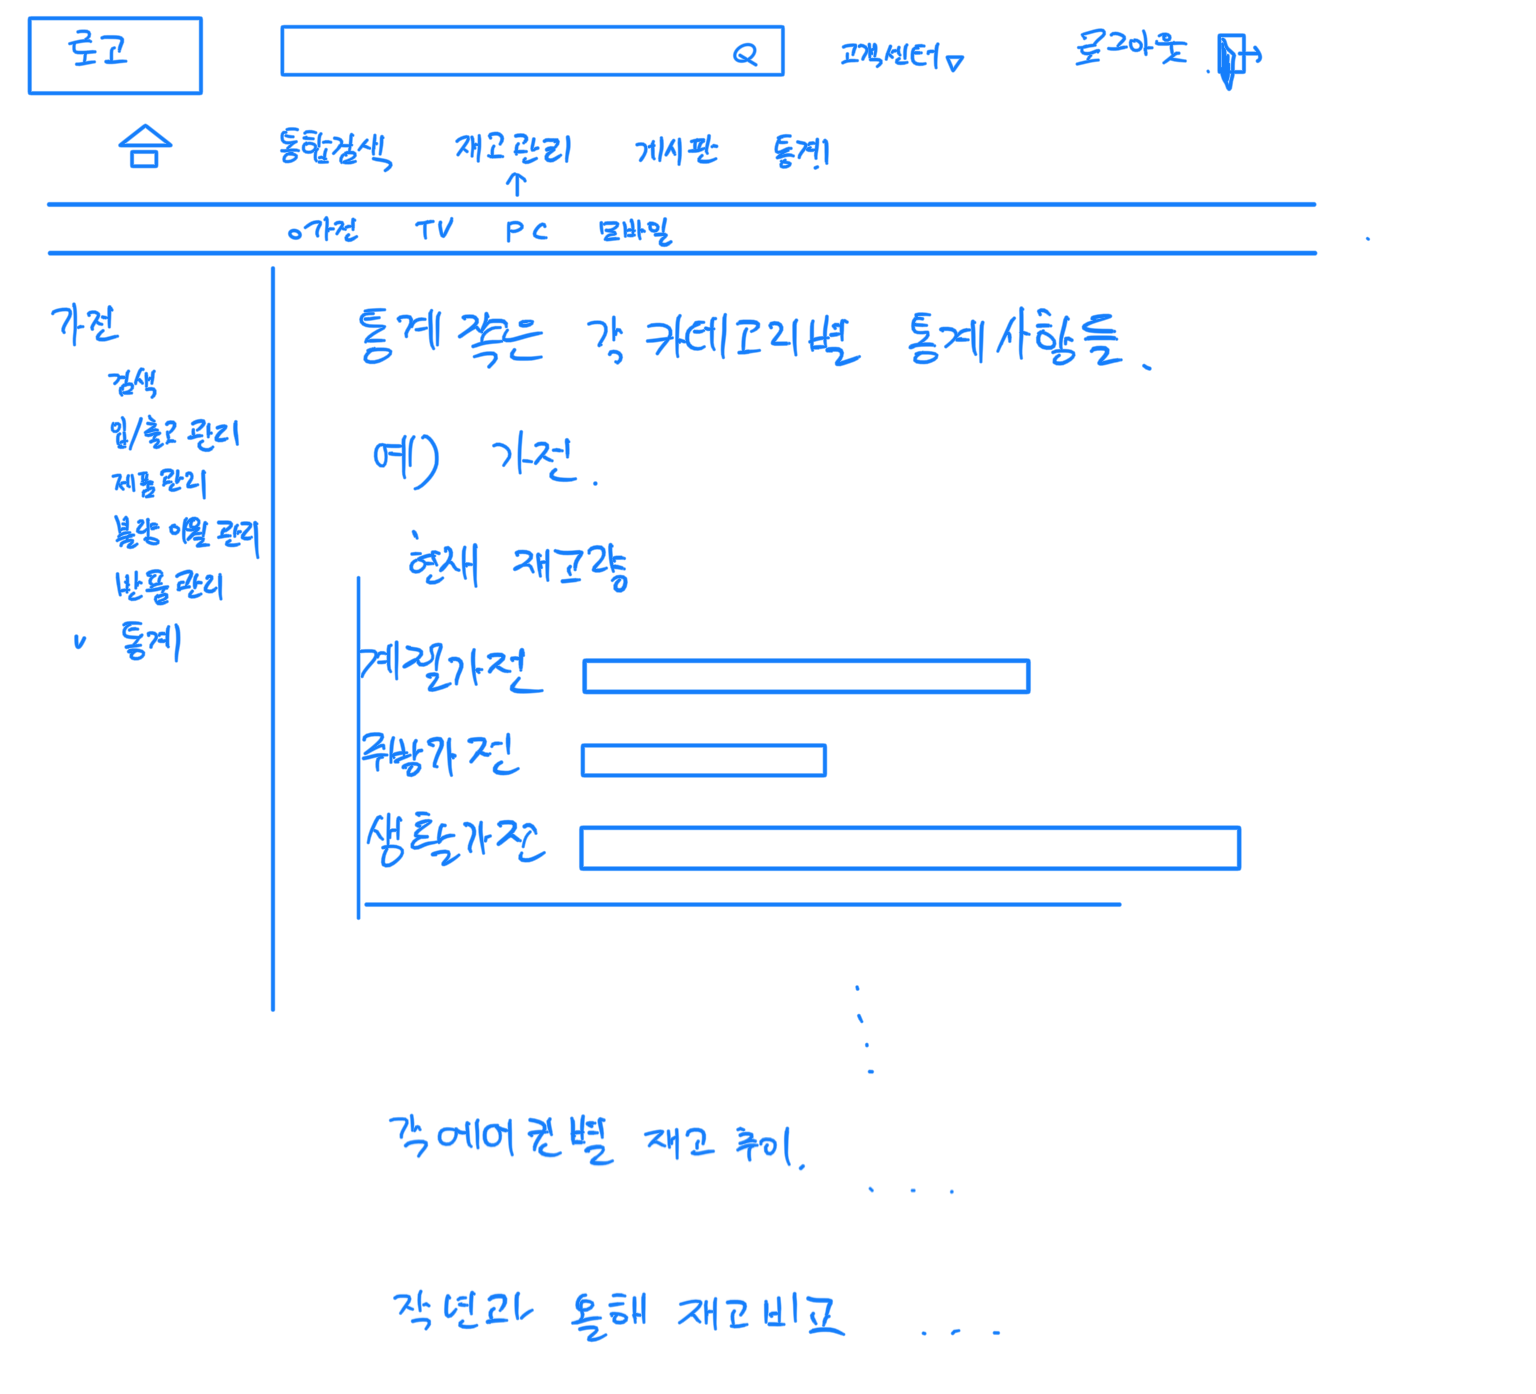 로고 Q 고객센터 로그아웃
통합검색 재고관리 게시판 통계
가전 TV PC 모바일
가전
검색
입/출고 관리
제품관리
불량 이월 관리
반품관리
통계
통계 쪽은 각 카테고리별 통계사항들.
예) 가전.
현재 재고량
계절가전
주방가전
생활가전
각 에어컨별 재고 추이. . . .
작년과 올해 재고비교 . . .